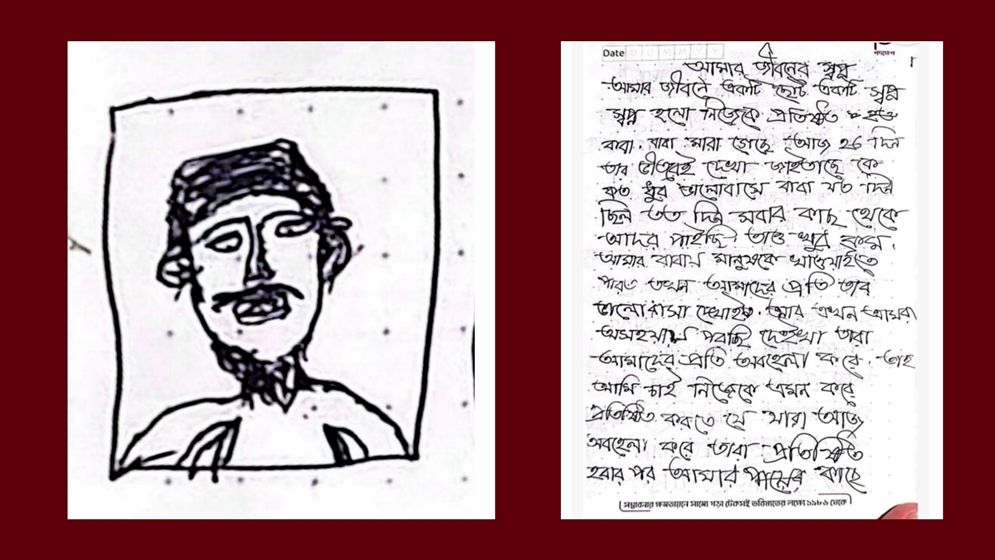 Date
আমার জীবনের স্বপ্ন
আমার জীবনে একটি ছোট একটি স্বপ্ন
স্বপ্ন হলো নিজেকে প্রতিষ্ঠিত
বাবা. বাবা মারা গেছে আজ ২৬ দিন
তার ভীতরেই দেখা জাইতাছে কে
কত ধুর ভালোবাসে বাবা যত দিন
ছিল তত দিন সবার কাছ থেকে
আদর পাইছি তাও খুব কম.
আমার বাবায় মানুষকে খাওয়াইতে
পারত তখন আমাদের প্রতি তার
ভালোবাসা দেখাইত. আর এখন আমরা
অসহয়ায় পরছি দেইখা তারা
আমাদের প্রতি অবহেলা করে. তাই
আমি চাই নিজেকে এমন করে
প্রতিষ্ঠিত করতে যে যারা আজ
অবহেলা করে তারা প্রতিষ্ঠিত
হবার পর আমার পায়ের কাছে
সম্ভাবনার ক্ষমতায়নে সাম্যে গড়া টেকসই ভবিষ্যতের লক্ষ্যে ১৯৮৬ থেকে